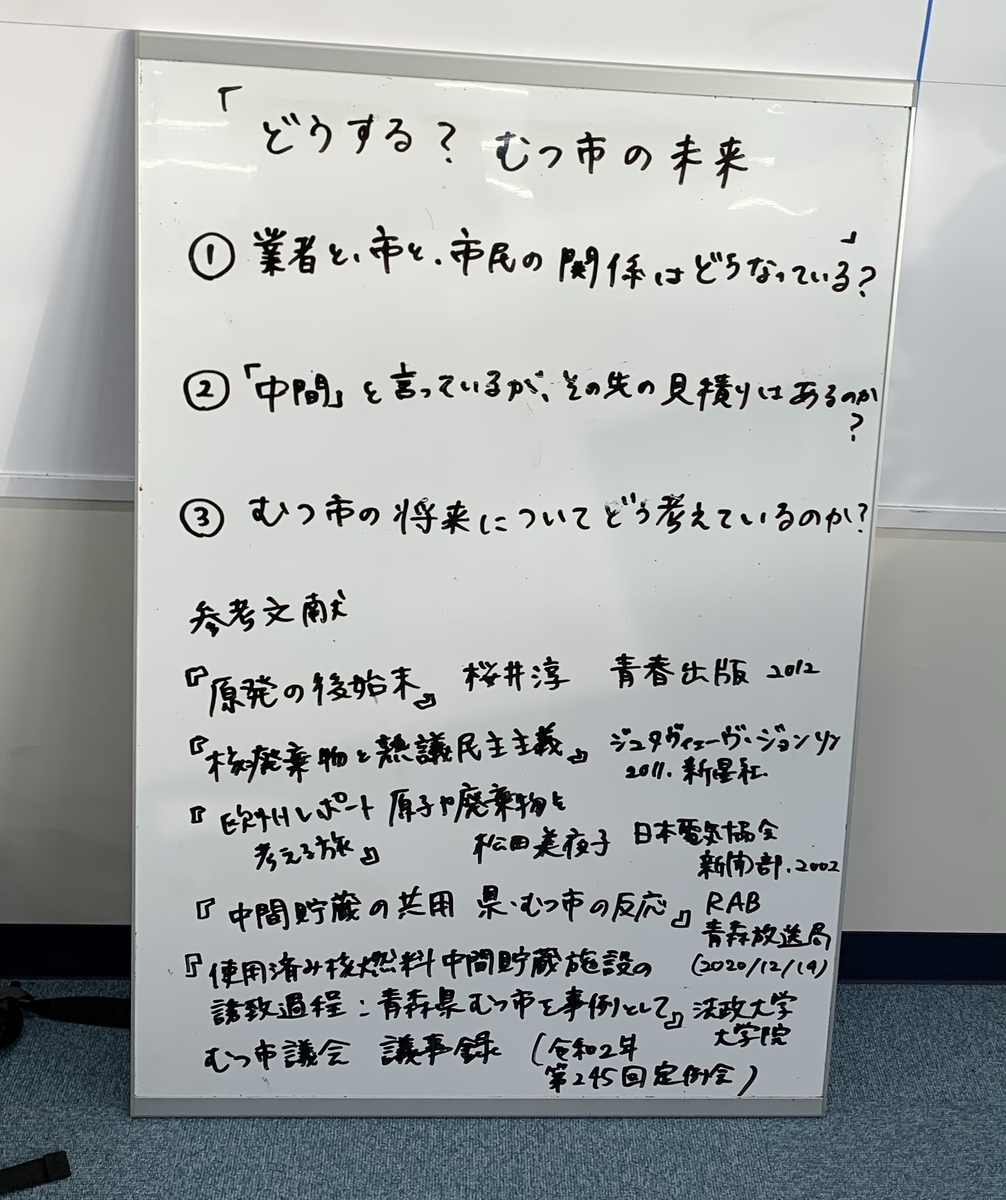 「どうする？ むつ市の未来」
① 業者と、市と、市民の関係はどうなっている？
② 「中間」と言っているが、その先の見積りはあるのか
？
③ むつ市の将来についてどう考えているのか？
参考文献
『原発の後始末』 桜井淳 青春出版 2012
『核廃棄物と熟議民主主義』 ジュヌヴィエーヴ・ジョンソン
2011. 新泉社.
『欧州レポート 原子力廃棄物を
考える旅』 松田美夜子 日本電気協会
新聞部. 2002
『中間貯蔵の共用 県・むつ市の反応』 RAB
青森放送局
(2020/12/19)
『使用済み核燃料中間貯蔵施設の
誘致過程：青森県むつ市を事例として』 法政大学
大学院
むつ市議会 議事録 (令和2年
第245回定例会)